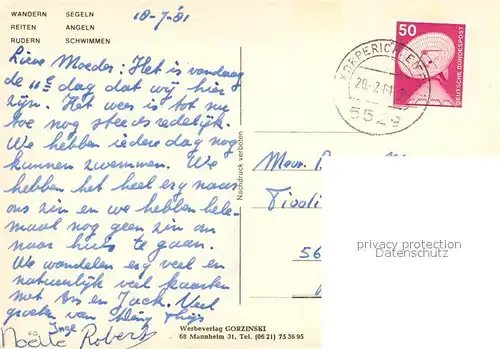 WANDERN SEGELN
REITEN ANGELN
RUDERN SCHWIMMEN
18-7-'81
Lieve Moeder: Het is vandaag
de 11e dag dat wij hier
zijn. Het weer is tot nu
toe nog steeds redelijk.
We hebben iedere dag nog
kunnen zwemmen. We
hebben het heel erg naar
ons zin en we hebben hele-
maal nog geen zin om
naar huis te gaan.
We wandelen erg veel en
natuurlijk veel
met en Jack. Veel
groeten van Thijs
Inge
Noëlle Robert
Nachdruck verboten
Werbeverlag GORZINSKI
68 Mannheim 31, Tel. (06 21) 75 36 95
50
DEUTSCHE BUNDESPOST
KÖRPERICH, EIFEL
20.-7.81
5529
Mevr.
Tivoli
56
profimedia
https://oldthing.de